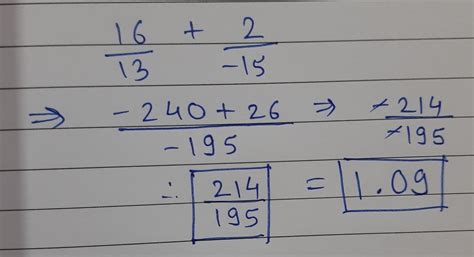 16/13 + 2/-15
⇒ -240+26/-195 ⇒ -214/-195
∴ 214/195 = 1.09